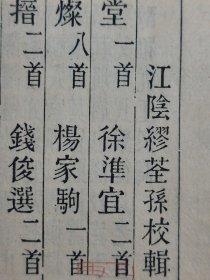 江陰繆荃孫校輯
堂一首　徐準宜二首
燦八首　楊家駒一首
搢二首　錢俊選二首